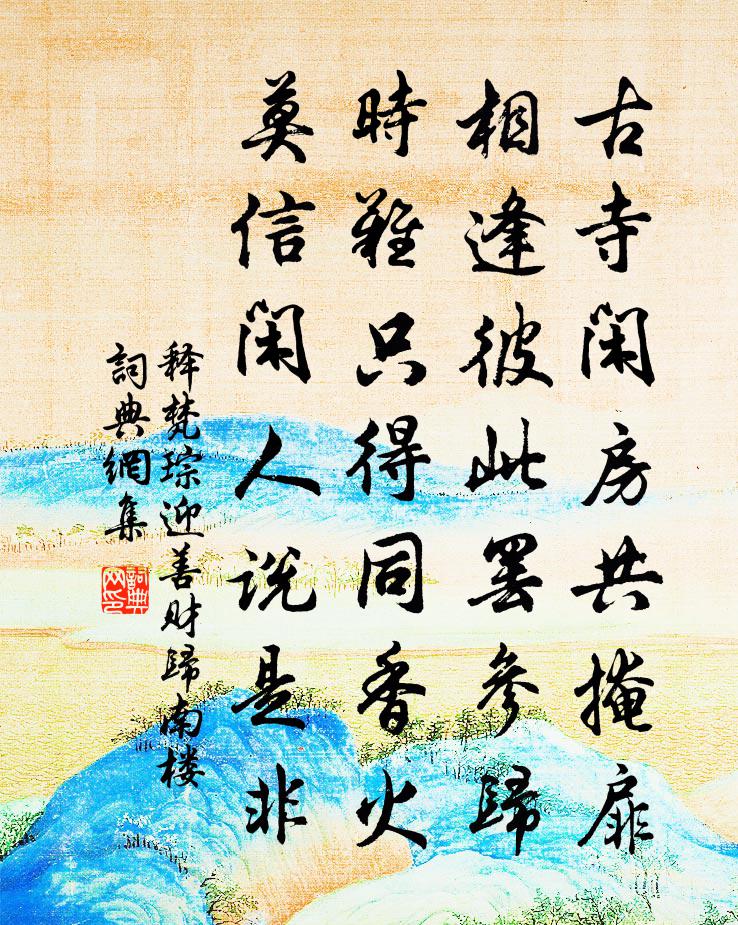 古寺闲房共掩扉
相逢彼此罢參歸
時難只得同香火
莫信闲人説是非
释梵琮迎善财歸南楼
詞典網集
詞典網印